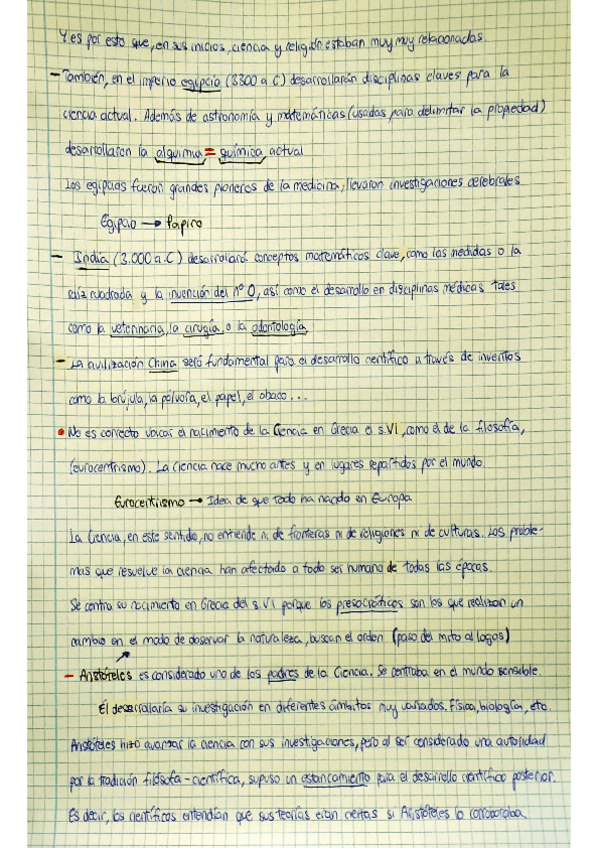 Y es por esto que, en sus inicios, ciencia y religión estaban muy muy relacionadas.
- También, en el imperio egipcio (3300 a C) desarrollarán disciplinas claves para la
ciencia actual. Además de astronomía y matemáticas (usadas para delimitar la propiedad)
desarrollaron la alquimia = química actual
Los egipcios fueron grandes pioneros de la medicina, llevaron investigaciones cerebrales
Egipcio → Papiro
- India (3.000 a.C) desarrollará conceptos matemáticos clave, como las medidas o la
raíz cuadrada y la invención del nº 0, así como el desarrollo en disciplinas médicas tales
como la veterinaria, la cirugía, o la odontología.
- La civilización China será fundamental para el desarrollo científico a través de inventos
como la brújula, la pólvora, el papel, el ábaco...
• No es correcto ubicar el nacimiento de la Ciencia en Grecia el s.VI, como el de la filosofía,
(eurocentrismo). La ciencia nace mucho antes y en lugares repartidos por el mundo
Eurocentrismo → Idea de que todo ha nacido en Europa
La Ciencia, en este sentido, no entiende ni de fronteras ni de religiones ni de culturas. Los proble-
mas que resuelve la ciencia han afectado a todo ser humano de todas las épocas.
Se centra su nacimiento en Grecia del s.VI porque los presocráticos son los que realizan un
cambio en el modo de observar la naturaleza, buscan el orden (paso del mito al logos)
- Aristóteles es considerado uno de los padres de la Ciencia. Se centraba en el mundo sensible.
Él desarrollaría su investigación en diferentes ámbitos muy variados. Física, biología, etc.
Aristóteles hizo avanzar la ciencia con sus investigaciones, pero al ser considerado una autoridad
por la tradición filósofa-científica, supuso un estancamiento para el desarrollo científico posterior.
Es decir, los científicos entendían que sus teorías eran ciertas si Aristóteles lo corroboraba.